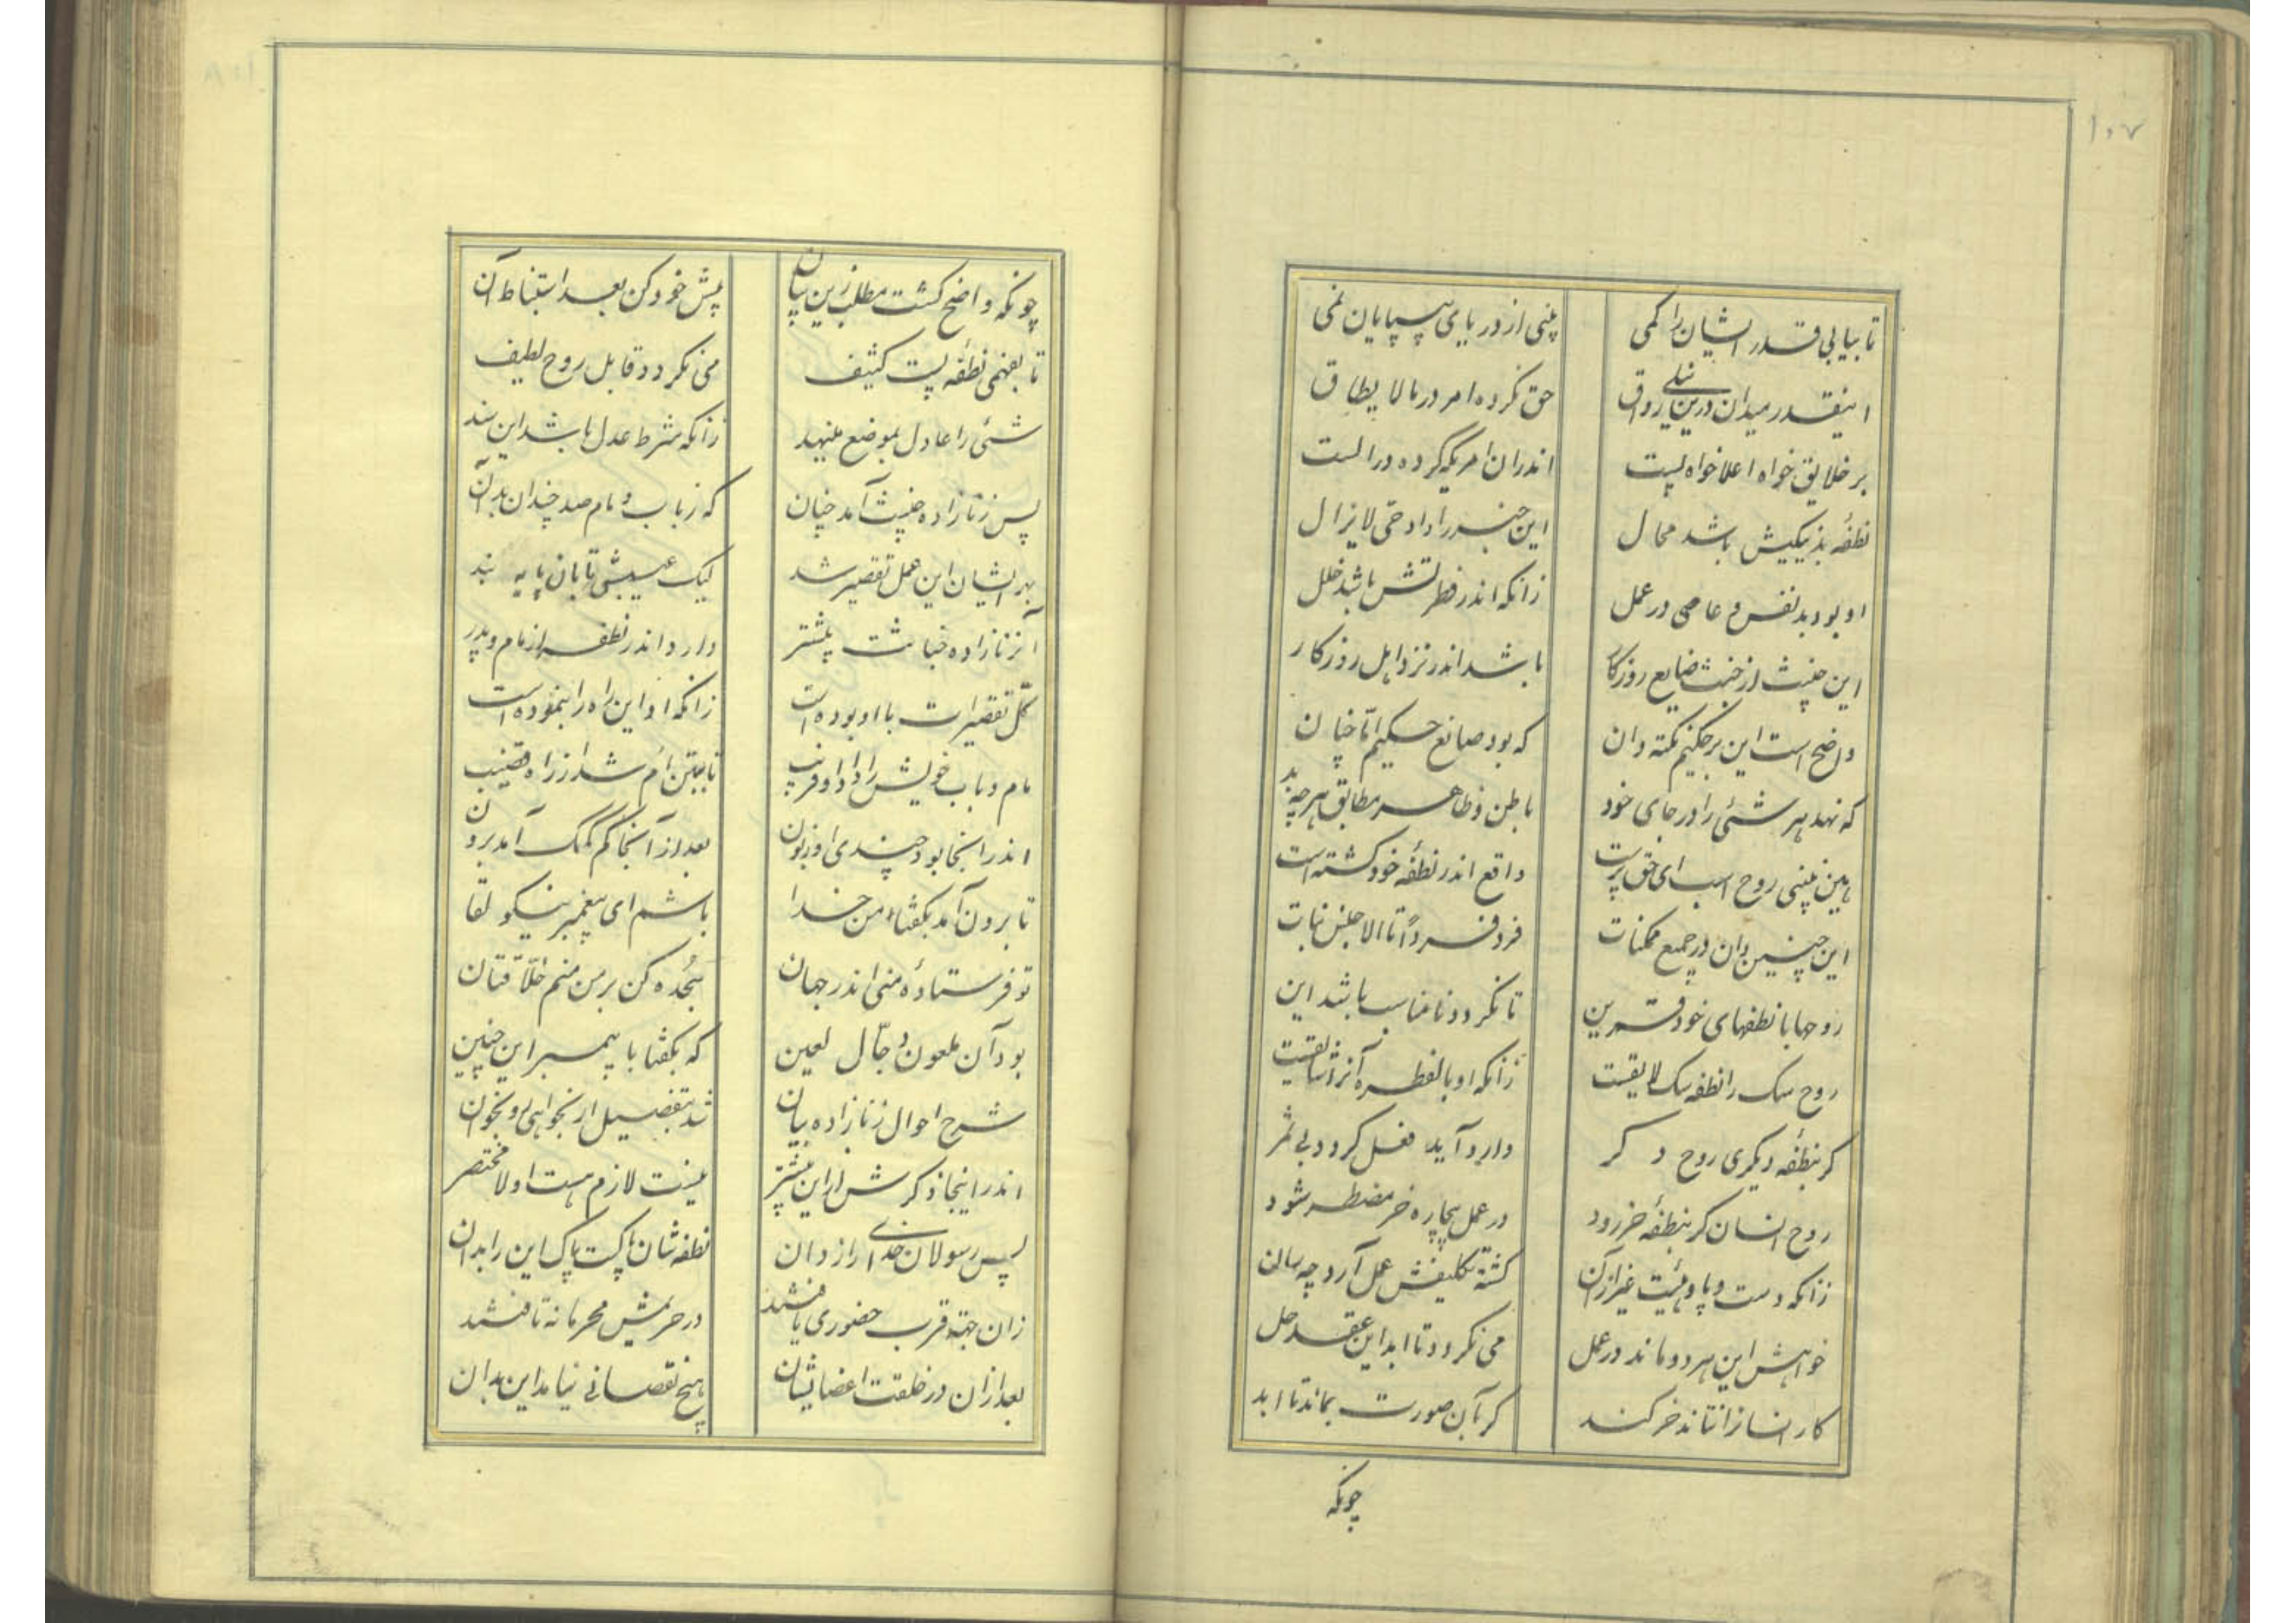 ۱۰۷
تا بیابی قدر ایشان را کمی
بینی از دریای بیپایان نمی
اینقدر میدان درین نیلی رواق
حق نکرده امر در مالا یطاق
بر خلایق خواه اعلا خواه پست
اندران امریکه کرده در الست
نطفهٔ بد نیکیش باشد محال
این خبر را داد حی لا یزال
او بود بد نفس و عاصی در عمل
زانکه اندر فطرتش باشد خلل
این خبیث از خبث ضایع روزکار
باشد اندر نزد اهل روزکار
واضح است این بر حکیم نکته دان
که بود صانع حکیم اتا چنان
که نهد هر شئی را در جای خود
باطن و ظاهر مطابق هر چه بد
هین ببینی روح اسب ای حق پرست
واقع اندر نطفهٔ خود کشته است
این چنین دان در جمیع ممکنات
فرد فرداً تا الا جنس نبات
روحها با نطفهای خود قرین
تا نکردد نا مناسب باشد این
روح سک را نطفه سک لایقست
زانکه او بالفطره آنرا شایقیت
کر بنطفه دیکری روح دکر
وارد آید فعل کردد بی ثمر
روح انسان کر بنطفهٔ خر رود
در عمل بیچاره خر مضطر شود
زانکه دست و پا و هیئت غیر ازآن
کشته تکلیفش عمل آرد چه سان
خواهش این هر دو ماند در عمل
می نکردد تا ابد این عقد حل
کار انسانرا نتاند خر کند
کر بآن صورت بماند تا ابد
چونکه
۱۰۸
چونکه واضح کشت مطلب زین بیان
پیش خود کن بعد استنباط آن
تا بفهمی نطفه پست کثیف
می نکردد قابل روح لطیف
شئی را عادل بموضع مینهد
زانکه شرط عدل باشد این سند
پس زنازاده خبیث آمد چنان
که ز باب و مام صد چندان بدآن
بهر ایشان این عمل تقصیر شد
لیک عیبشی تا بآن پایه بند
آنزنازاده خباثت بیشتر
دارد اندر نطفه از مام و پدر
کل تقصیرات با او بوده است
زانکه او این راه را بنموده است
مام و باب خویش را داد او فریب
تا ببتن ام شد از راه قضیب
اندر انجا بود چندی او زبون
بعد از آنجا کم کمک آمد برون
تا برون آمد بکفتا من خدا
باشم ای پیغمبر نیکو لقا
تو فرستادهٔ منی اندر جهان
سجده کن بر من منم خلاقتان
بود آن ملعون دجال لعین
که بکفتا با پیمبر این چنین
شرح احوال زنازاده بیان
شد بتفصیل ار بخواهی رو بخوان
اندر اینجا ذکرش از این بیشتر
نیست لازم هست اولا مختصر
پس رسولان خدای را رازدان
نطفه شان پاکست پاک این را بدان
زان جهة قرب حضوری یافتند
در حریمش محرمانه تافتند
بعد ازان در خلقت اعضایشان
هیچ نقصانی نیامد این بدان